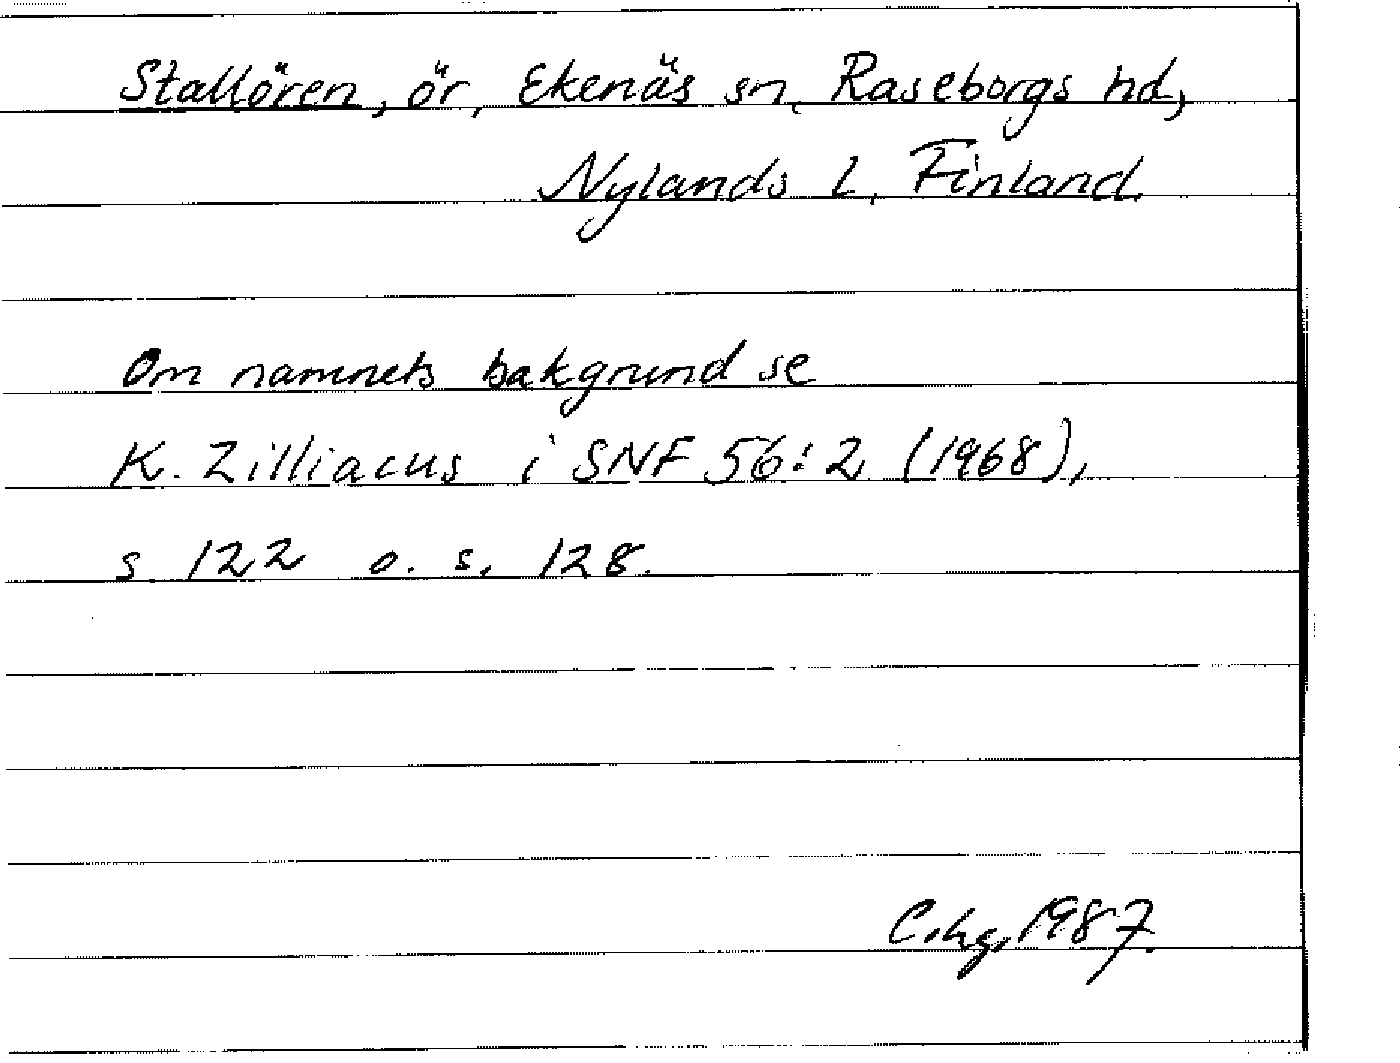 Stallören, ör, Ekenäs sn, Raseborgs hd,
Nylands l, Finland.
Om namnets bakgrund se
K. Zilliacus i SNF 56:2 (1968),
s 122 o. s. 128.
1987.